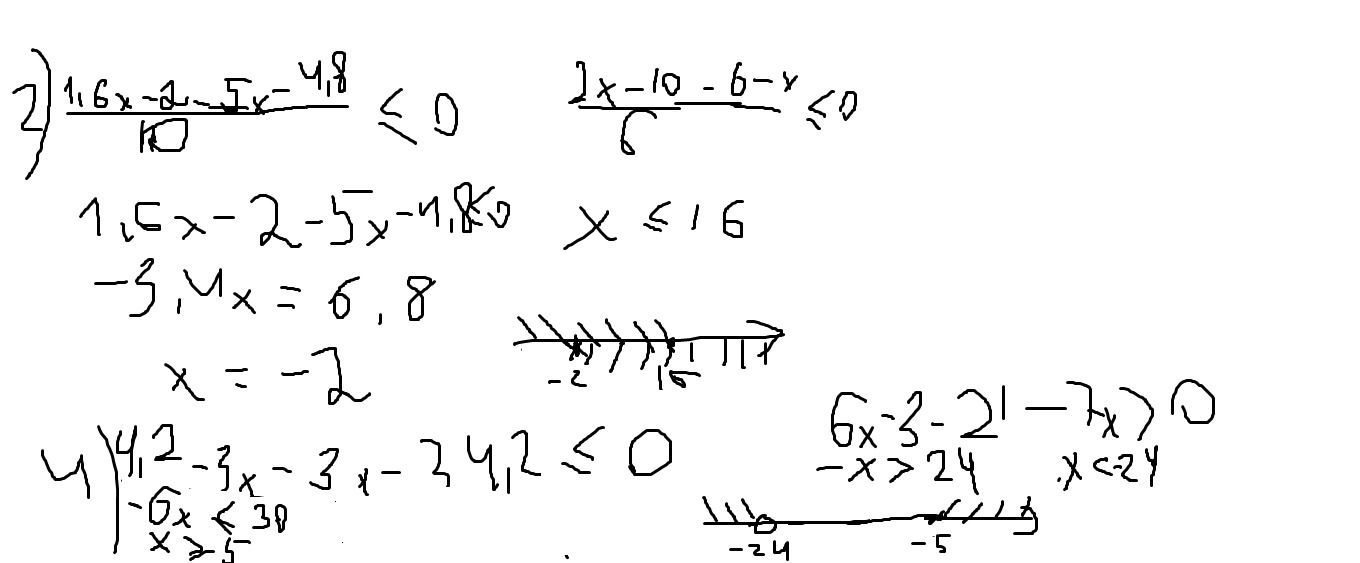 2) (1,6x-2-5x-4,8)/10 ≤ 0
(2x-10-6-x)/6 ≤ 0
1,6x-2-5x-4,8≤0
x ≤ 16
-3,4x = 6,8
x = -2
-2 16
4) 4,2-3x-3x-34,2 ≤ 0
-6x ≤ 30
x ≥ -5
6x-3-21-7x>0
-x > 24 x <-24
-24 -5